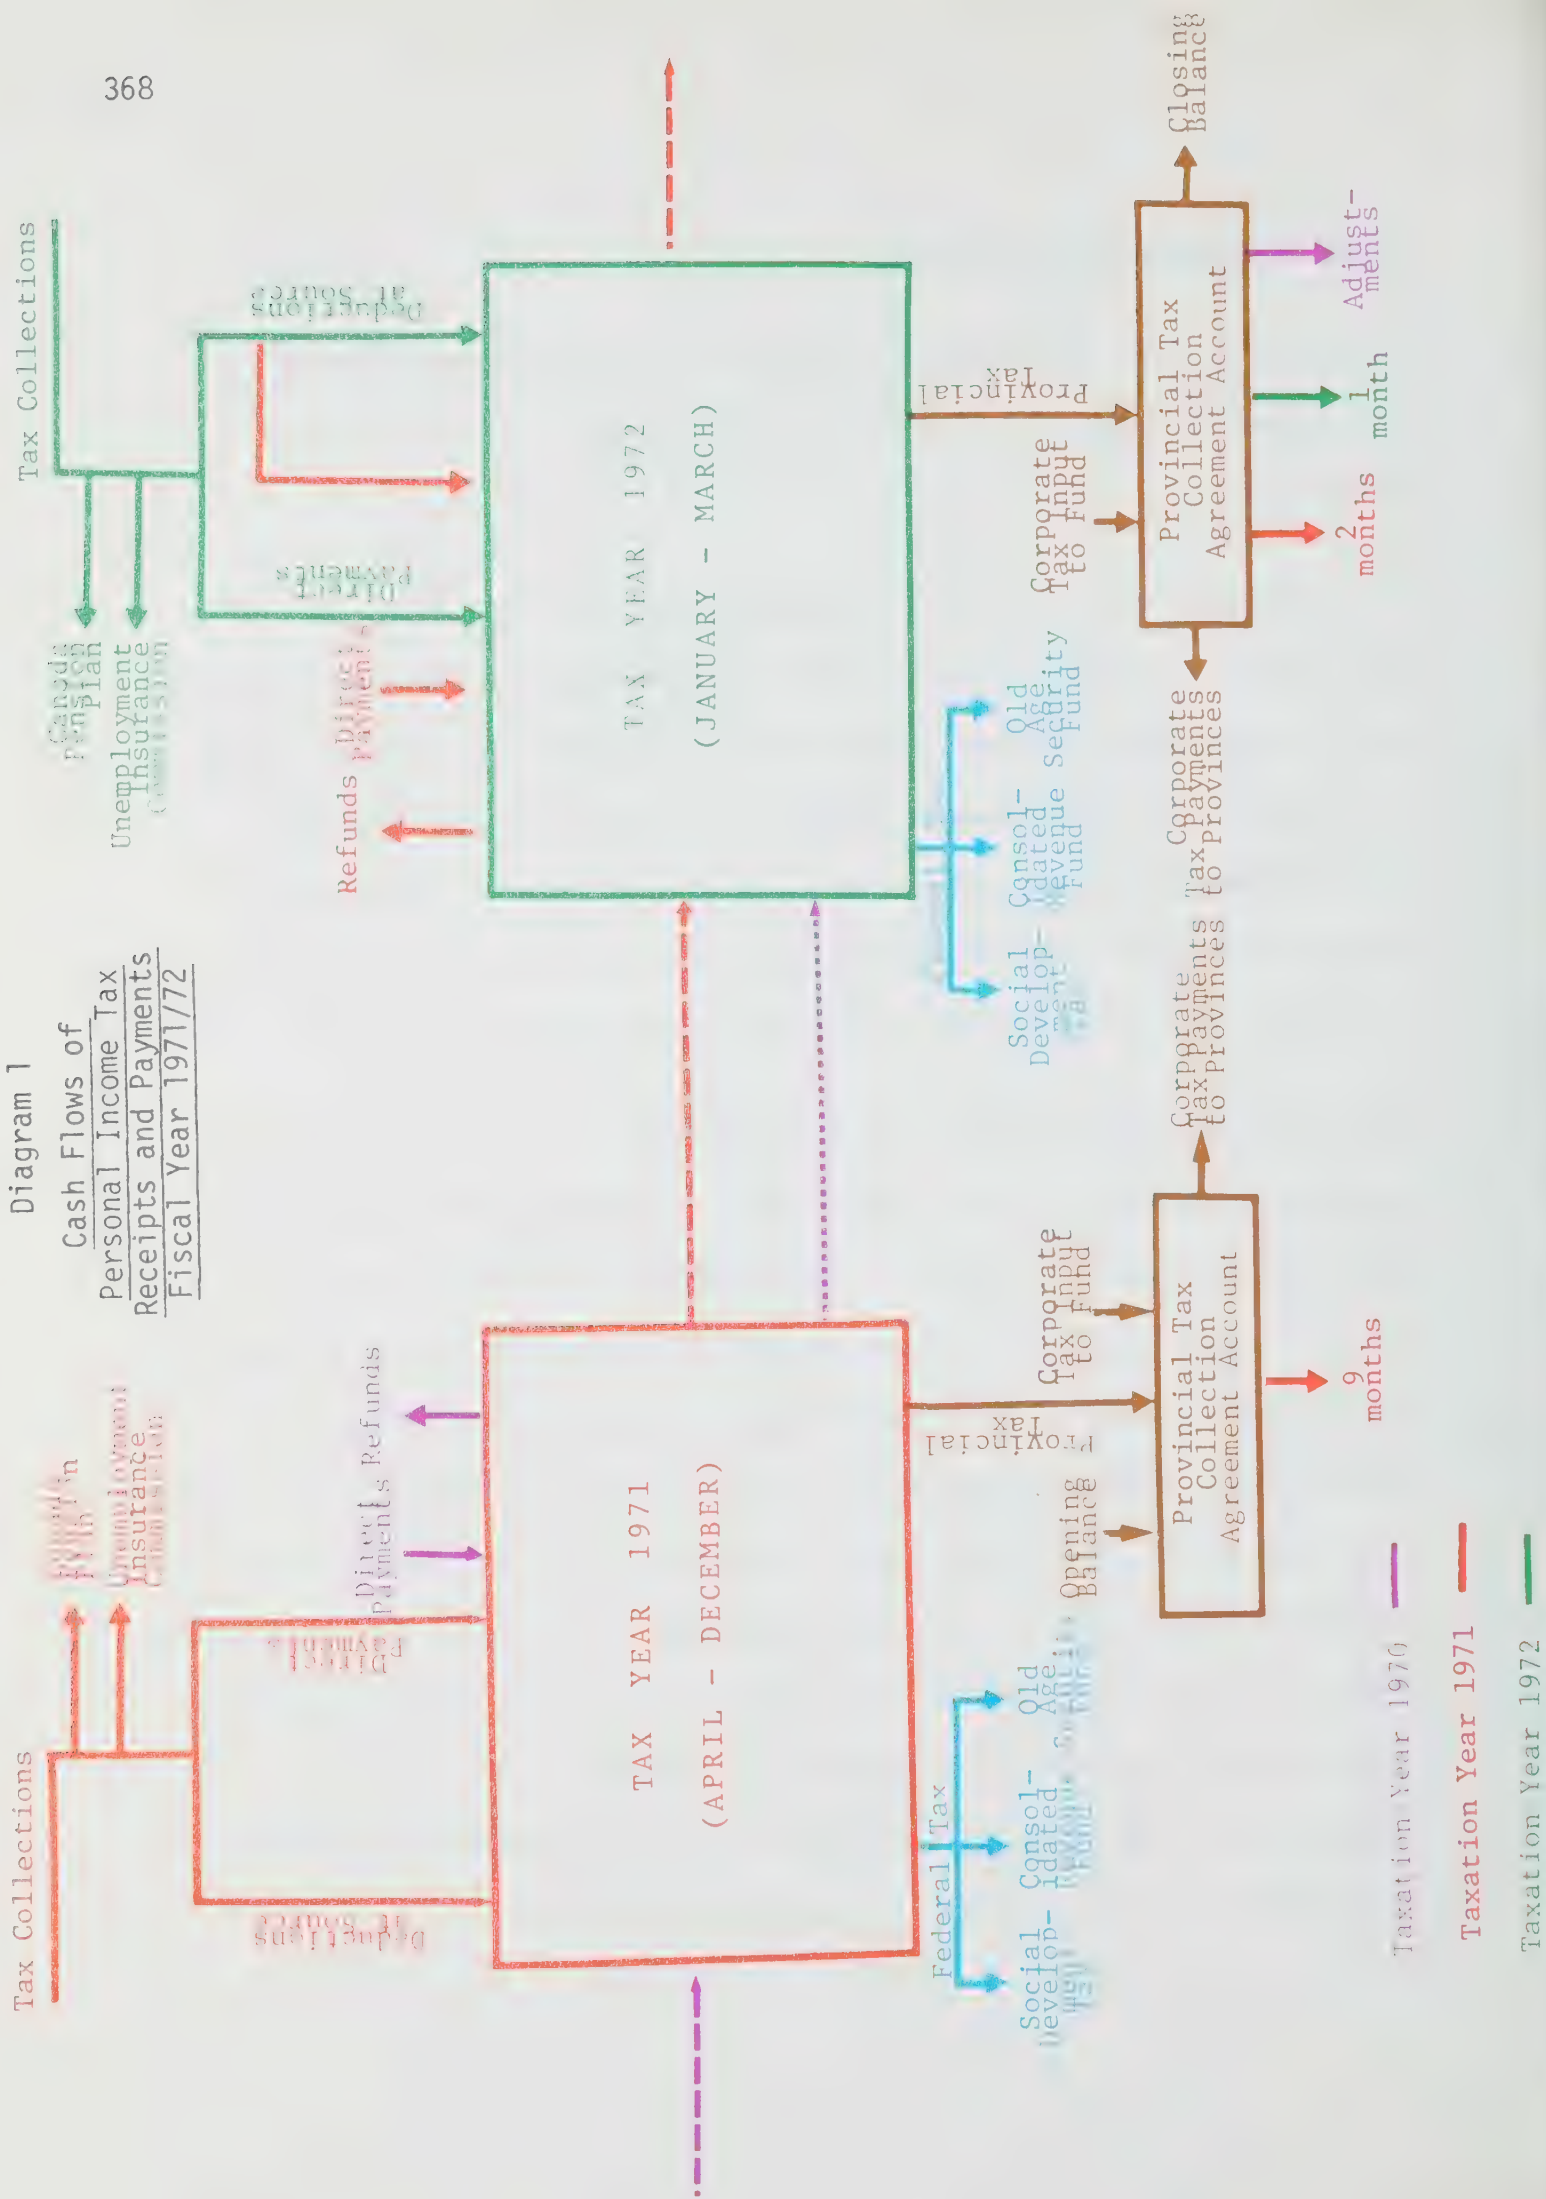 368
Diagram 1
Cash Flows of
Personal Income Tax
Receipts and Payments
Fiscal Year 1971/72
Tax Collections
Unemployment
Insurance
Deductions
at Source
Direct
Payments
Direct
Payments
Refunds
TAX YEAR 1971
(APRIL - DECEMBER)
Federal Tax
Social
Develop-
ment
Consol-
idated
Fund
Old
Age
Provincial
Tax
Opening
Balance
Corporate
Tax Input
to Fund
Provincial Tax
Collection
Agreement Account
Corporate
Tax Payments
to Provinces
9
months
Tax Collections
Canada
Pension
Plan
Unemployment
Insurance
Commission
Direct
Payments
Deductions
at Source
Refunds
Direct
Payments
TAX YEAR 1972
(JANUARY - MARCH)
Social
Develop-
ment
Consol-
idated
Revenue
Fund
Old
Age
Security
Fund
Provincial
Tax
Corporate
Tax Input
to Fund
Provincial Tax
Collection
Agreement Account
Corporate
Tax Payments
to Provinces
Closing
Balance
2
months
1
month
Adjust-
ments
Taxation Year 1970
Taxation Year 1971
Taxation Year 1972